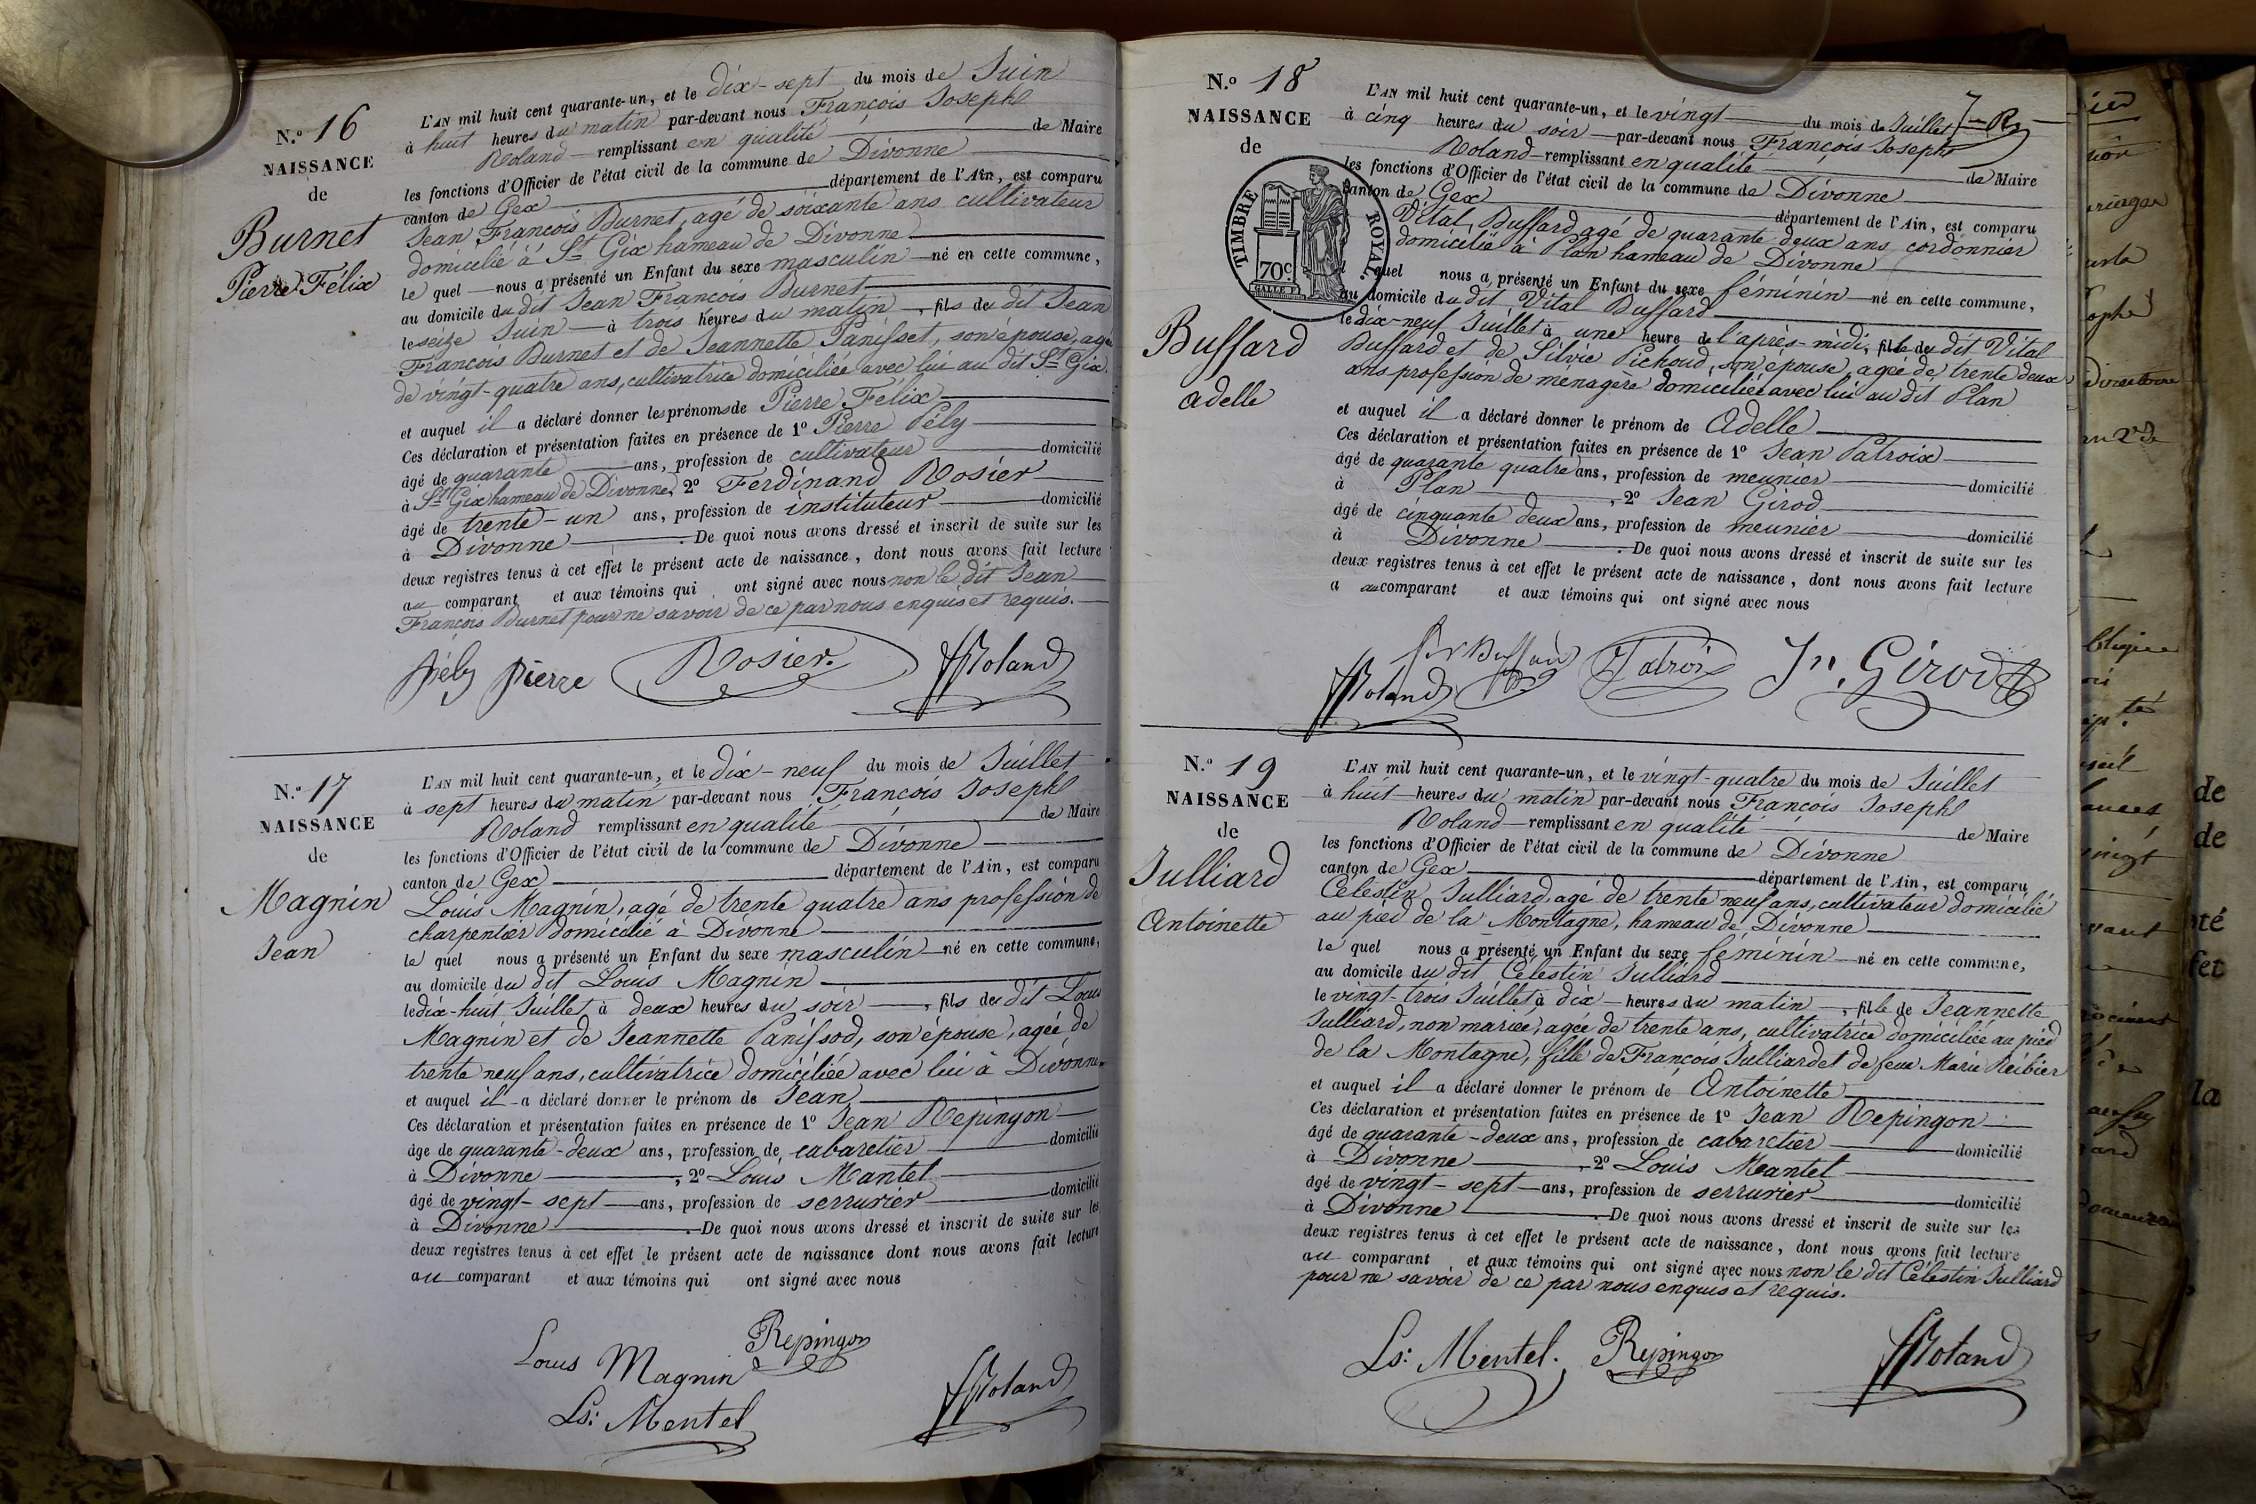 N.º 16
NAISSANCE
de
Burnet
Pierre Félix
L'AN mil huit cent quarante-un, et le dix-sept du mois de Juin
à huit heures du matin par-devant nous François Joseph
Roland remplissant en qualité de Maire
les fonctions d'Officier de l'état civil de la commune de Divonne
canton de Gex département de l'Ain, est comparu
Jean François Burnet, agé de soixante ans cultivateur
domicilié à St Gix hameau de Divonne
le quel nous a présenté un Enfant du sexe masculin né en cette commune,
au domicile du dit Jean François Burnet
le seize Juin à trois heures du matin, fils de dit Jean
François Burnet et de Jeannette Panisset, son épouse, agée
de vingt-quatre ans, cultivatrice domiciliée avec lui au dit St Gix.
et auquel il a déclaré donner les prénoms de Pierre Félix
Ces déclaration et présentation faites en présence de 1º Pierre Pély
âgé de quarante ans, profession de cultivateur domicilié
à St Gix hameau de Divonne, 2º Ferdinand Rosier
âgé de trente-un ans, profession de instituteur domicilié
à Divonne. De quoi nous avons dressé et inscrit de suite sur les
deux registres tenus à cet effet le présent acte de naissance, dont nous avons fait lecture
au comparant et aux témoins qui ont signé avec nous non le dit Jean
François Burnet pour ne savoir de ce par nous enquis et requis.
Pély Pierre Rosier. Roland
N.º 17
NAISSANCE
de
Magnin
Jean
L'AN mil huit cent quarante-un, et le dix-neuf du mois de Juillet
à sept heures du matin par-devant nous François Joseph
Roland remplissant en qualité de Maire
les fonctions d'Officier de l'état civil de la commune de Divonne
canton de Gex département de l'Ain, est comparu
Louis Magnin, agé de trente quatre ans profession de
charpentier domicilié à Divonne
le quel nous a présenté un Enfant du sexe masculin né en cette commune,
au domicile du dit Louis Magnin
le dix-huit Juillet à deux heures du soir, fils de dit Louis
Magnin et de Jeannette Panissod, son épouse, agée de
trente neuf ans, cultivatrice domiciliée avec lui à Divonne.
et auquel il a déclaré donner le prénom de Jean
Ces déclaration et présentation faites en présence de 1º Jean Repingon
âge de quarante-deux ans, profession de cabaretier domicilié
à Divonne, 2º Louis Mantel
âgé de vingt-sept ans, profession de serrurier domicilié
à Divonne. De quoi nous avons dressé et inscrit de suite sur les
deux registres tenus à cet effet le présent acte de naissance dont nous avons fait lecture
au comparant et aux témoins qui ont signé avec nous
Louis Magnin Repingon
Ls: Mentel Roland
N.º 18
NAISSANCE
de
TIMBRE ROYAL.
70c
Buffard
Adelle
L'AN mil huit cent quarante-un, et le vingt du mois de Juillet
à cinq heures du soir par-devant nous François Joseph
Roland remplissant en qualité de Maire
les fonctions d'Officier de l'état civil de la commune de Divonne
canton de Gex département de l'Ain, est comparu
Vital Buffard agé de quarante deux ans cordonnier
domicilié à Plan hameau de Divonne
quel nous a présenté un Enfant du sexe féminin né en cette commune,
au domicile du dit Vital Buffard
le dix-neuf Juillet à une heure de l'après-midi, fille de dit Vital
Buffard et de Silvie Pichoud, son épouse, agée de trente deux
ans profession de ménagère domiciliée avec lui au dit Plan
et auquel il a déclaré donner le prénom de Adelle
Ces déclaration et présentation faites en présence de 1º Jean Patroix
âgé de quarante quatre ans, profession de meunier domicilié
à Plan, 2º Jean Girod
âgé de cinquante deux ans, profession de meunier domicilié
à Divonne. De quoi nous avons dressé et inscrit de suite sur les
deux registres tenus à cet effet le présent acte de naissance, dont nous avons fait lecture
a au comparant et aux témoins qui ont signé avec nous
Buffard Patroix Jn. Girod
Roland
N.º 19
NAISSANCE
de
Julliard
Antoinette
L'AN mil huit cent quarante-un, et le vingt-quatre du mois de Juillet
à huit heures du matin par-devant nous François Joseph
Roland remplissant en qualité de Maire
les fonctions d'Officier de l'état civil de la commune de Divonne
canton de Gex département de l'Ain, est comparu
Célestin Julliard, agé de trente neuf ans, cultivateur domicilié
au pied de la Montagne, hameau de Divonne
le quel nous a présenté un Enfant du sexe féminin né en cette commune,
au domicile du dit Célestin Julliard
le vingt-trois Juillet à dix heures du matin, fille de Jeannette
Julliard, non mariée, agée de trente ans, cultivatrice domiciliée au pied
de la Montagne, fille de François Julliard et de feue Marie Réibier
et auquel il a déclaré donner le prénom de Antoinette
Ces déclaration et présentation faites en présence de 1º Jean Repingon
âgé de quarante-deux ans, profession de cabaretier domicilié
à Divonne, 2º Louis Mantel
âgé de vingt-sept ans, profession de serrurier domicilié
à Divonne. De quoi nous avons dressé et inscrit de suite sur les
deux registres tenus à cet effet le présent acte de naissance, dont nous avons fait lecture
au comparant et aux témoins qui ont signé avec nous non le dit Célestin Julliard
pour ne savoir de ce par nous enquis et requis.
Ls: Mentel. Repingon Roland